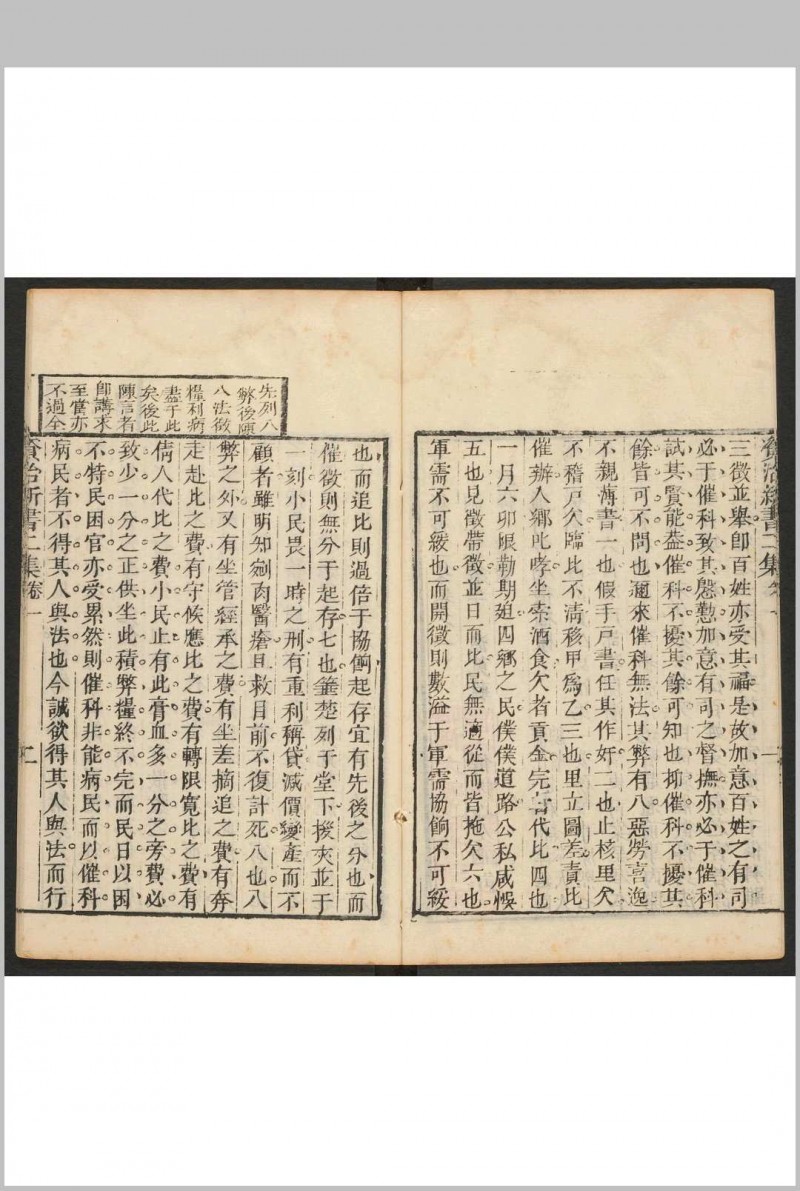 資治新書二集卷一
一
三徵並舉卽百姓亦受其福是故加意百姓之有司
必于催科致其慇懃加意有司之督撫亦必于催科
試其賢能葢催科不擾其餘可知也抑催科不擾其
餘皆可不問也邇來催科無法其弊有八惡勞喜逸
不親薄書一也假手戸書任其作奸二也止核里欠
不稽戸欠臨比不清移甲爲乙三也里立圖差責比
催辦人鄉叱哮坐索酒食欠者貢金完者代比四也
一月六卯限勒期廹四鄉之民僕僕道路公私咸悞
五也見徵帶徵並日而比民無適從而皆拖欠六也
軍需不可緩也而開徵則數溢于軍需協餉不可綬
也而追比則過倍于協餉起存宜有先後之分也而
催徵則無分于起存七也箠楚列于堂下援夾並于
一刻小民畏一時之刑有重利稱貸減價變產而不
顧者雖明知剜肉醫瘡且救目前不復計死八也八
弊之外又有坐管經承之費有坐差摘追之費有奔
走赴比之費有守候應比之費有轉限寬比之費有
倩人代比之費小民止有此膏血多一分之旁費必
致少一分之正供坐此積弊糧終不完而民日以困
不特民困官亦受累然則催科非能病民而以催科
病民者不得其人與法也今誠欲得其人與法而行
先列八
弊後陳
八法徵
糧利病
盡于此
矣後此
陳言者
卽講求
至當亦
不過全
資治新書二集卷一
二